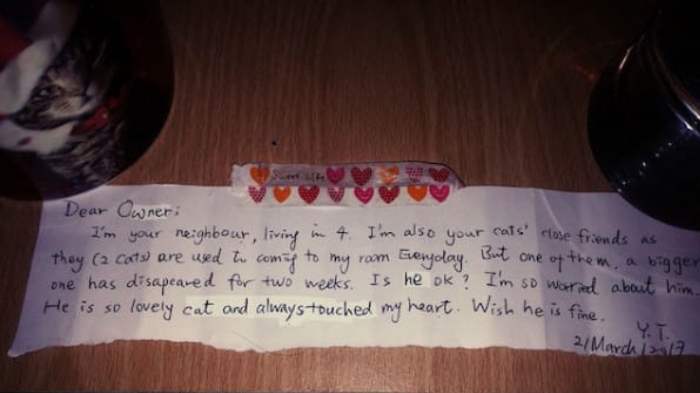 Sweet Life
Dear Owner:
I'm your neighbour, living in 4. I'm also your cats' close friends as
they (2 cats) are used to coming to my room Everyday. But one of them, a bigger
one has disapeared for two weeks. Is he ok? I'm so worried about him.
He is so lovely cat and always touched my heart. Wish he is fine.
Y.T.
21March/2017